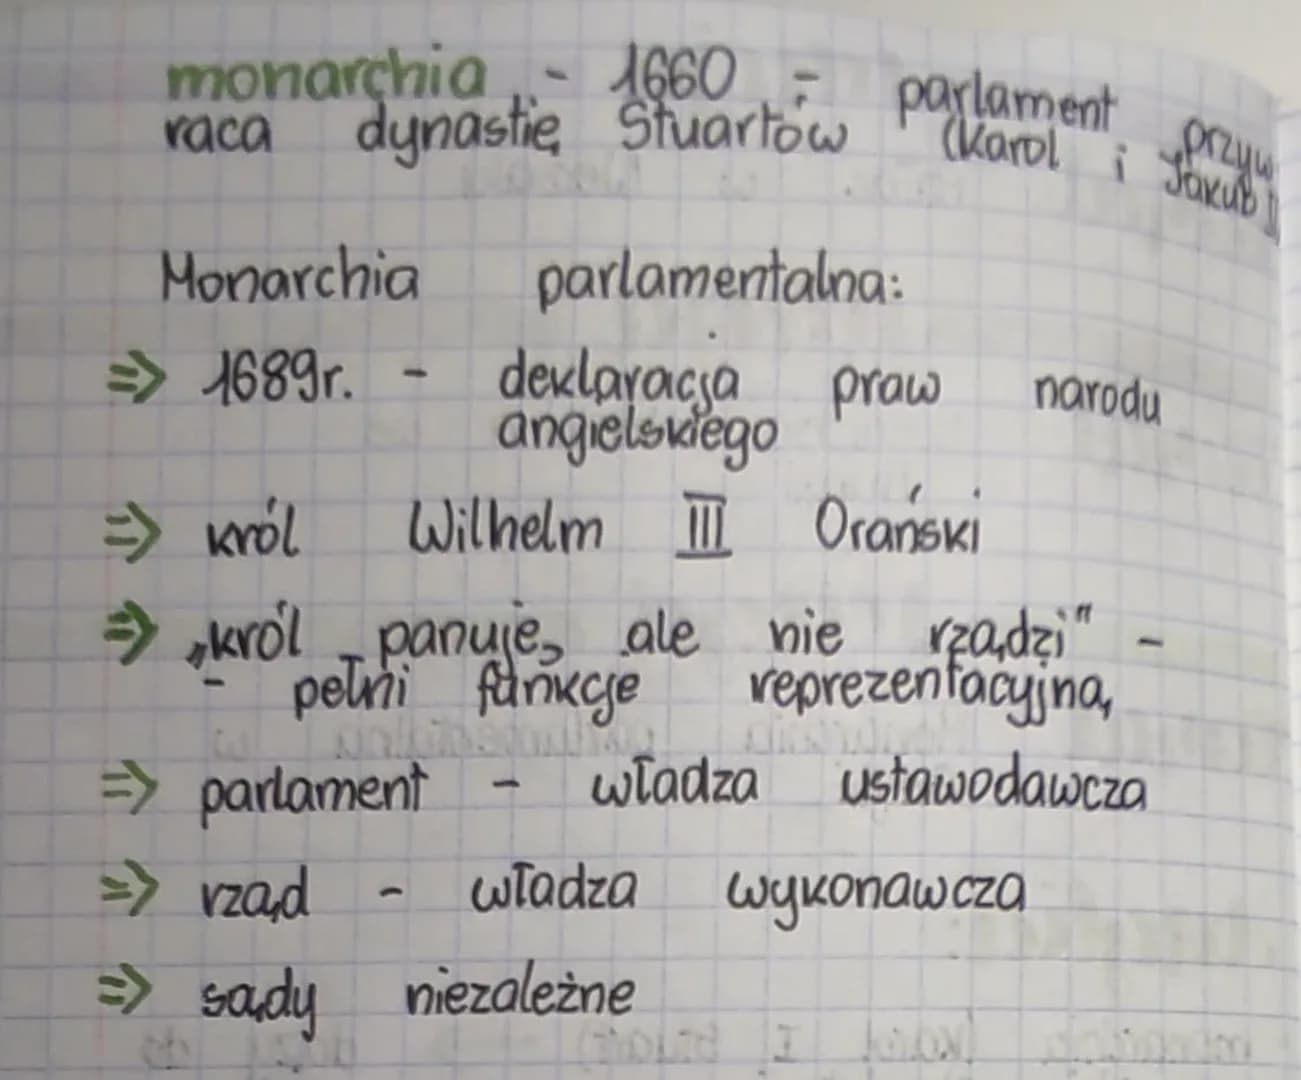 monarchia - 1660 - parlament przyw
raca dynastię Stuartów (Karol i Jakub II
Monarchia parlamentalna:
⇒ 1689r. - deklaracja praw narodu
angielskiego
⇒ król Wilhelm III Orański
⇒ „król panuje, ale nie rządzi" -
- pełni funkcje reprezentacyjną
⇒ parlament - władza ustawodawcza
⇒ rząd - władza wykonawcza
⇒ sądy niezależne